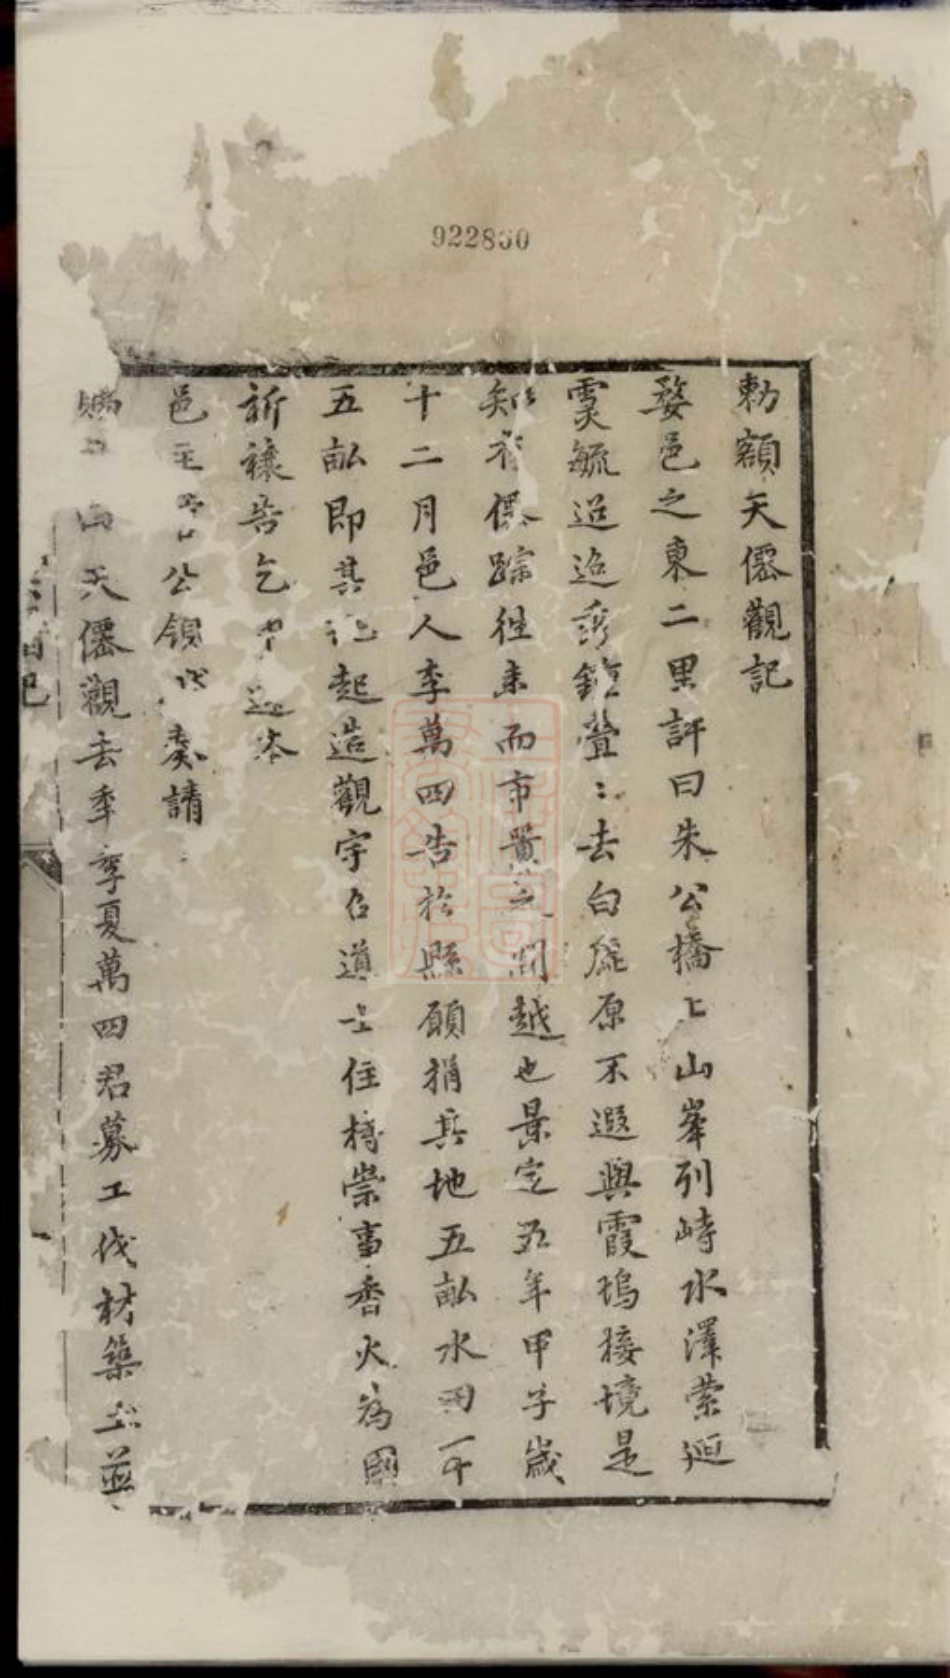 922830
勅額天僊觀記
婺邑之東二里許曰朱公橋上山峯列峙水澤縈迴
雲毓迢迢秀鍾萱〻去白鹿原不遐與霞塢接境是
知有僊踪徃来而市貫之間越也景定五年甲子歲
十二月邑人李萬四告於縣願捐其地五畝水田一十
五畝即其地起造觀宇召道士住持崇事香火為國
祈禳告乞
邑主公領奏請
天僊觀去年季夏萬四君募工伐材築土並